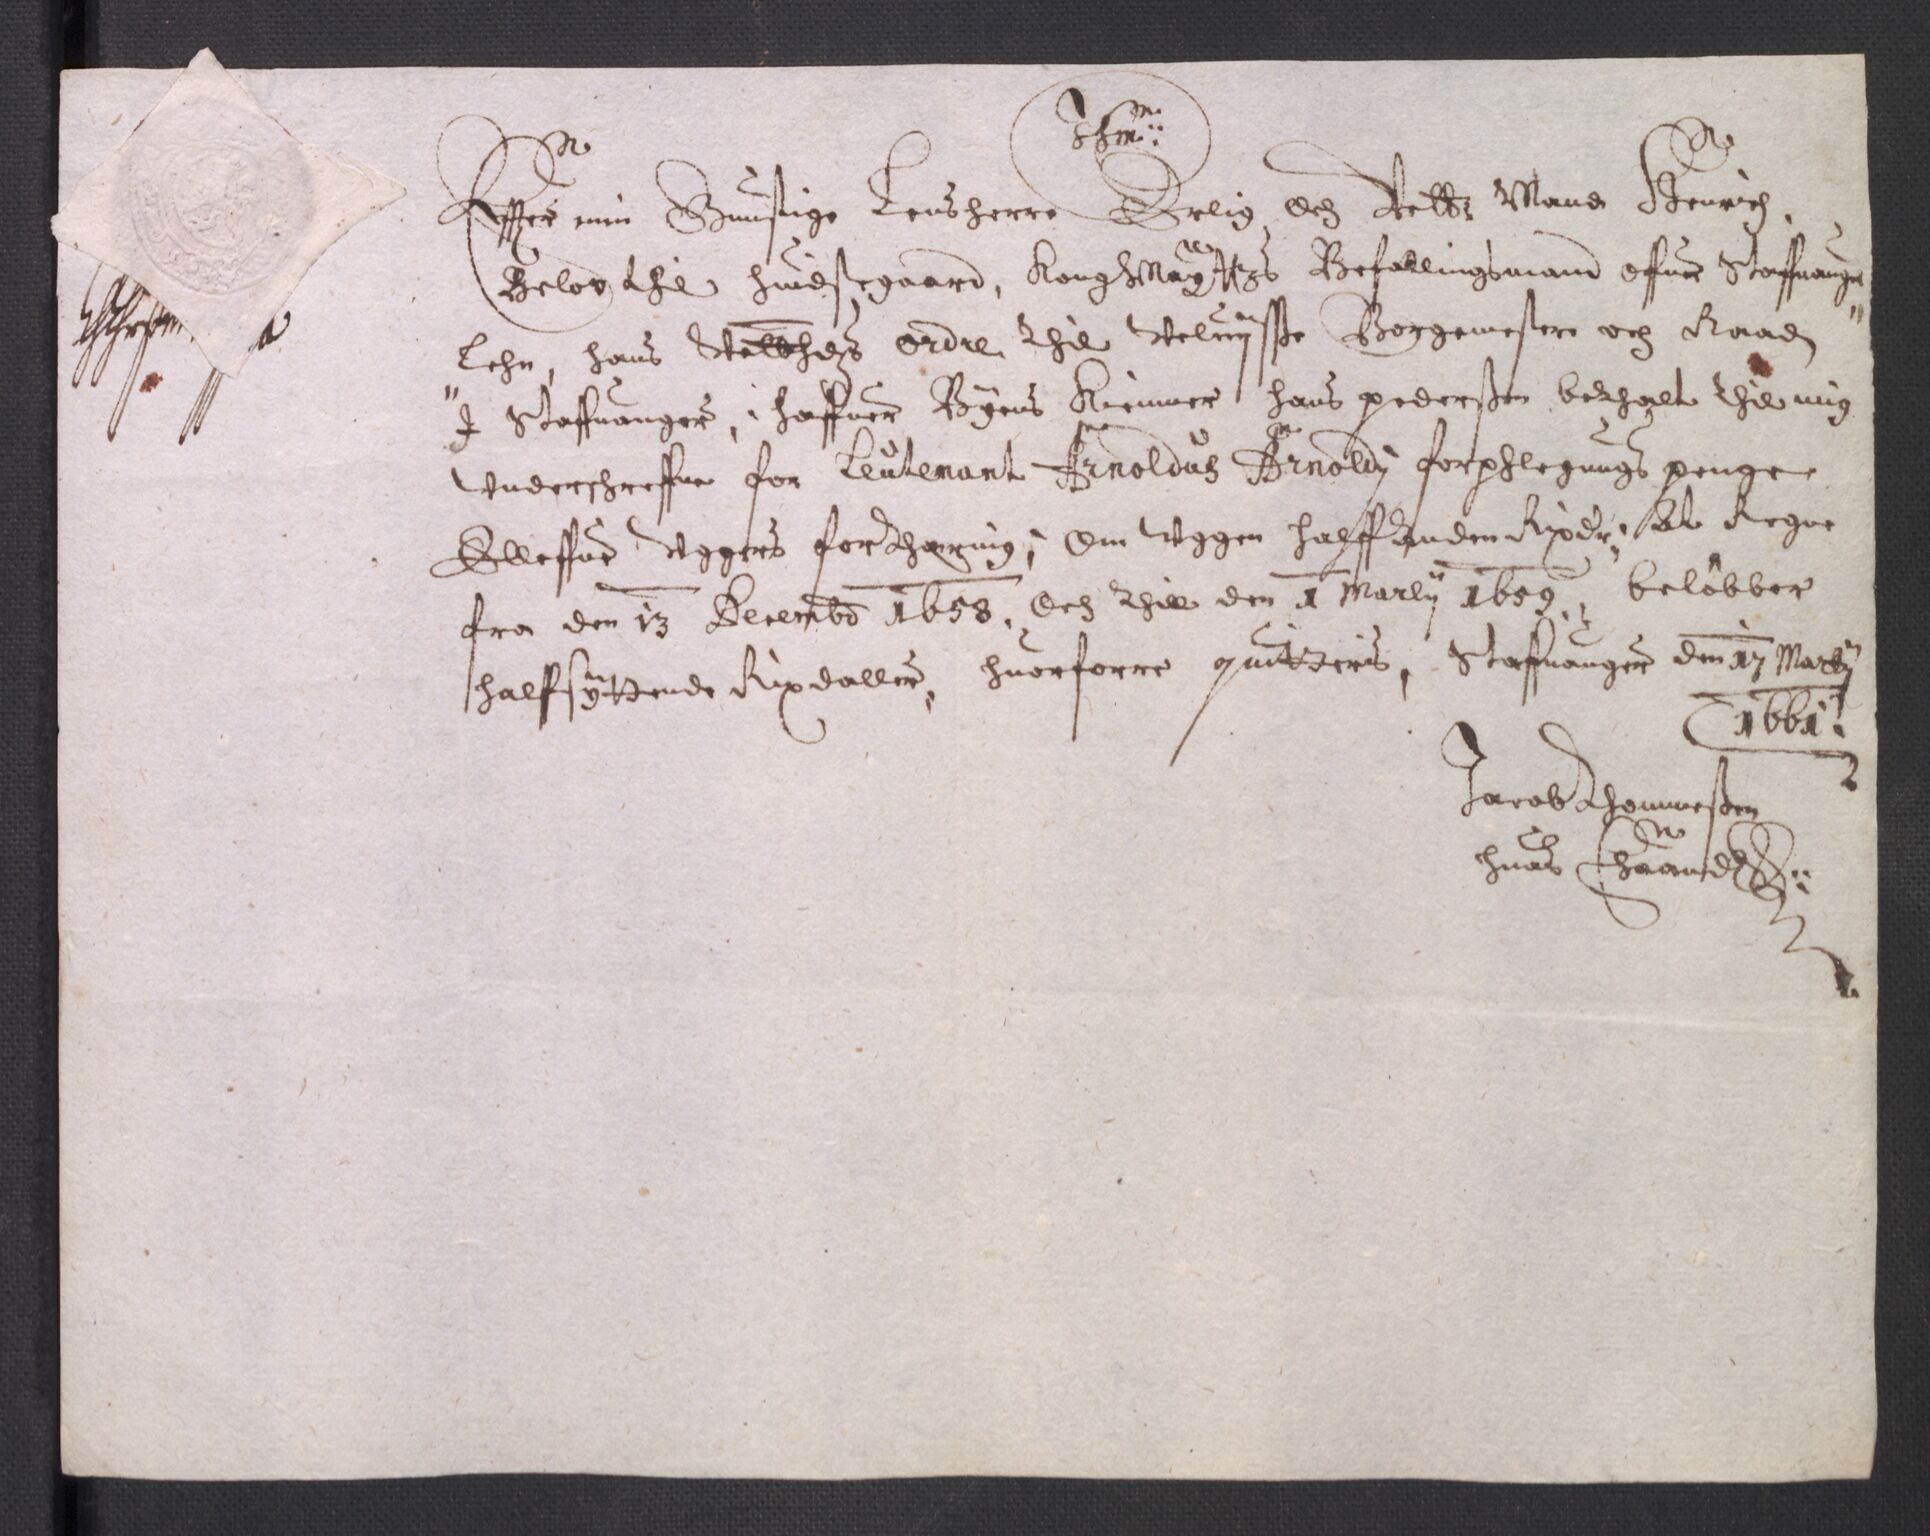 Effter min Gunstige Lensherre Erlig Och Welb: Mand Henrich
Below thil Huidstegaard, Kong: May:ttz Befallingsmand offuer Staffuanger
Lehn, hans Welb:hedz ordre thil Velvysse Borgemestere och Raad
J Staffuanger, haffuer Byens Kiemner Hans Pedersen bethalt thil mig
Vnderschreffne for Leutenant Arnoldus Arnoldj forphlegnings penge
Elleffue Vggers forthæring, Om Vggen halff Anden Rixdr: At Regne
fra den 13 Decemb: 1658, Och thill den 1 Martij 1659, beløbber
halffsyttende Rixdaller, huorforre quitteris, Staffuanger den 17 Martij
1661:
Jacob Thommeßen
hnas Haand